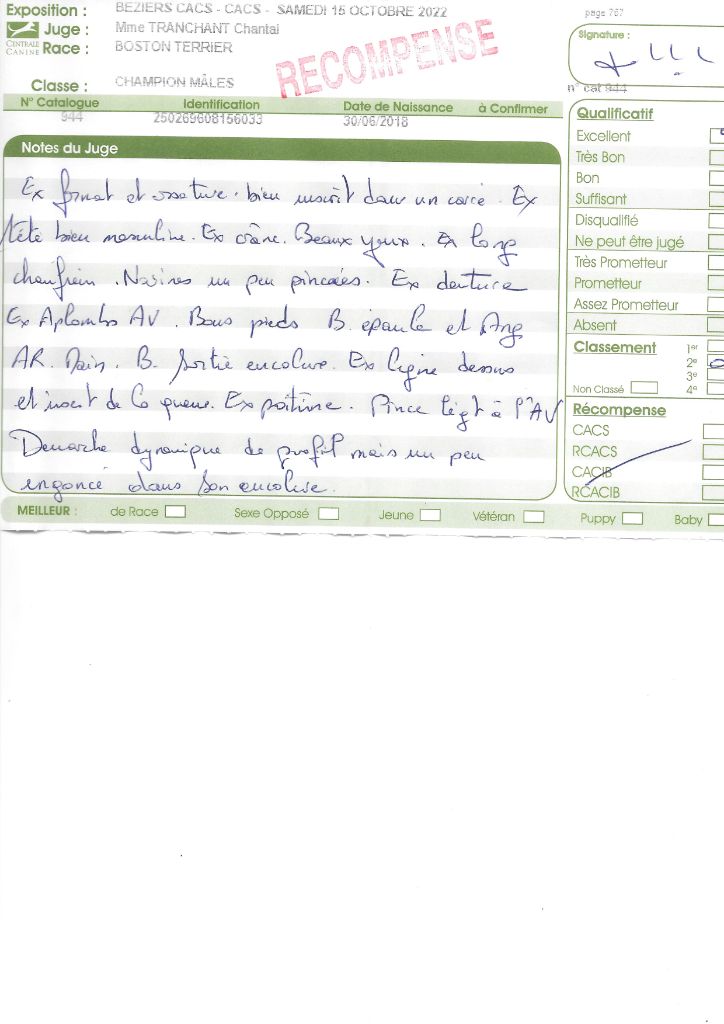 Exposition : BEZIERS CACS - CACS - SAMEDI 15 OCTOBRE 2022
Juge : Mme TRANCHANT Chantal
CENTRALE CANINE
Race : BOSTON TERRIER
RECOMPENSE
Classe : CHAMPION MÂLES
N° Catalogue Identification Date de Naissance à Confirmer
944 250269608156033 30/06/2018
Notes du Juge
Ex format et ossature. bien inscrit dans un carré. Ex
tête bien masculine. Ex crâne. Beaux yeux. Ex long
chanfrein. Narines un peu pincées. Ex denture
Ex Aplombs AV. Bons pieds B. épaule et Ang
AR. Main. B. sortie encolure. Ex ligne dessus
et insert de la queue. Ex poitrine. Pince légt à l'AV
Démarche dynamique de profil mais un peu
engoncé dans son encolure.
MEILLEUR : de Race Sexe Opposé Jeune Vétéran Puppy Baby
page 767
Signature :
n° cat 944
Qualificatif
Excellent
Très Bon
Bon
Suffisant
Disqualifié
Ne peut être jugé
Très Prometteur
Prometteur
Assez Prometteur
Absent
Classement 1er
2e
3e
Non Classé 4e
Récompense
CACS
RCACS
CACIB
RCACIB